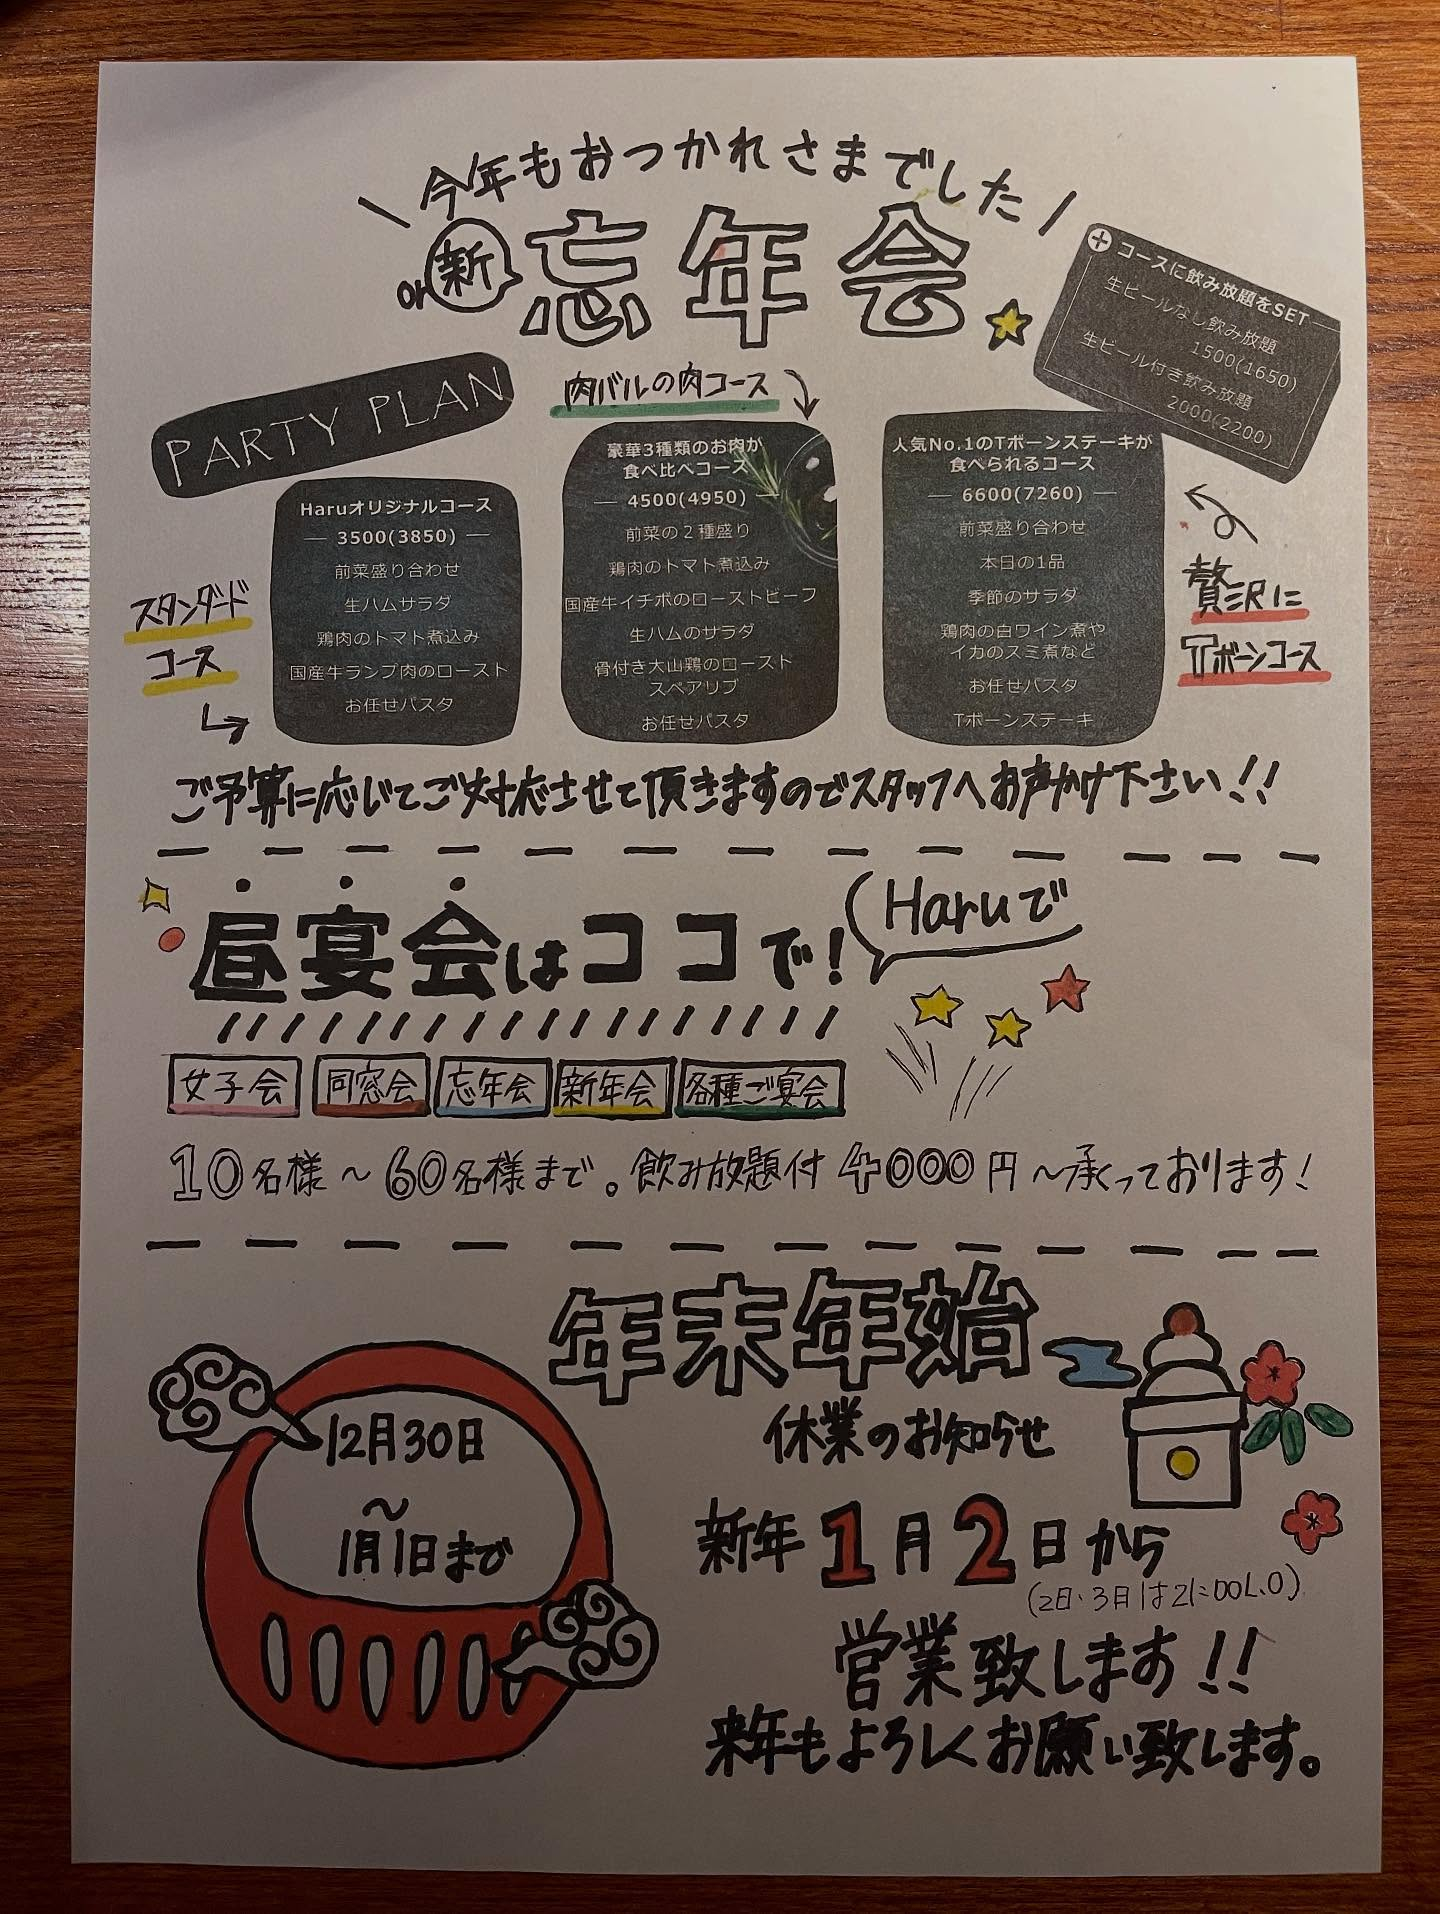 今年もおつかれさまでした
or 新 忘年会
⊕ コースに飲み放題をSET
生ビールなし飲み放題
1500(1650)
生ビール付き飲み放題
2000(2200)
PARTY PLAN
スタンダード
コース
Haruオリジナルコース
3500(3850)
前菜盛り合わせ
生ハムサラダ
鶏肉のトマト煮込み
国産牛ランプ肉のロースト
お任せパスタ
肉バルの肉コース
豪華3種類のお肉が
食べ比べコース
4500(4950)
前菜の2種盛り
鶏肉のトマト煮込み
国産牛イチボのローストビーフ
生ハムのサラダ
骨付き大山鶏のロースト
スペアリブ
お任せパスタ
人気No.1のTボーンステーキが
食べられるコース
6600(7260)
前菜盛り合わせ
本日の1品
季節のサラダ
鶏肉の白ワイン煮や
イカのスミ煮など
お任せパスタ
Tボーンステーキ
贅沢に
Tボーンコース
ご予算に応じてご対応させて頂きますのでスタッフへお声かけ下さい!!
昼宴会はココで!
Haruで
女子会 同窓会 忘年会 新年会 各種ご宴会
10名様～60名様まで。飲み放題付4000円～承っております!
年末年始
休業のお知らせ
12月30日
～
1月1日まで
新年1月2日から
(2日・3日は21:00L.O)
営業致します!!
来年もよろしくお願い致します。